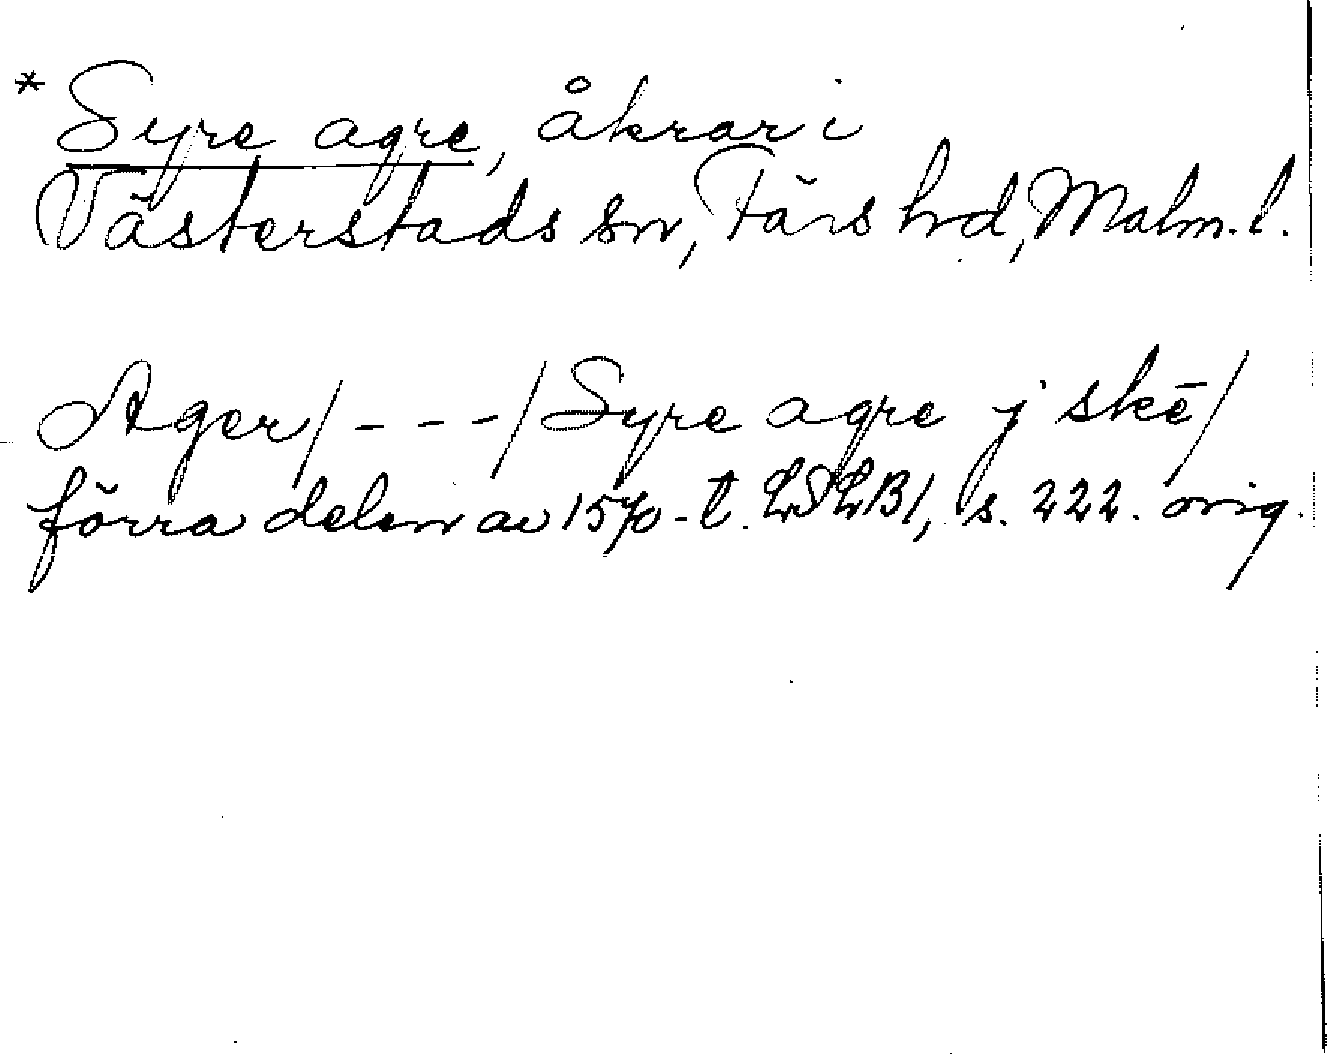 * Syre agre, åkrar i
Västerstads sn, Färs hd, Malm. l.
Ager/ - - - /Syre agre j skē/
förra delen av 1570-t. LSLB1, s. 222. orig.